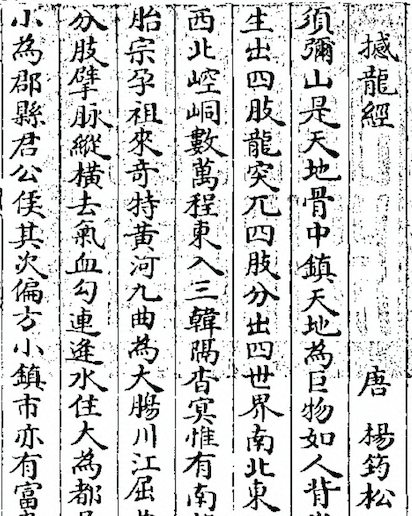 撼龍經 唐 楊筠松
須彌山是天地骨中鎮天地為巨物如人背
生出四肢龍突兀四肢分出四世界南北東
西北崆峒數萬程東入三韓隔杳冥惟有南
胎宗孕祖來奇特黃河九曲為大腸川江屈
分肢擘脉縱橫去氣血勾連逢水住大為都
小為郡縣君公侯其次偏方小鎮市亦有富